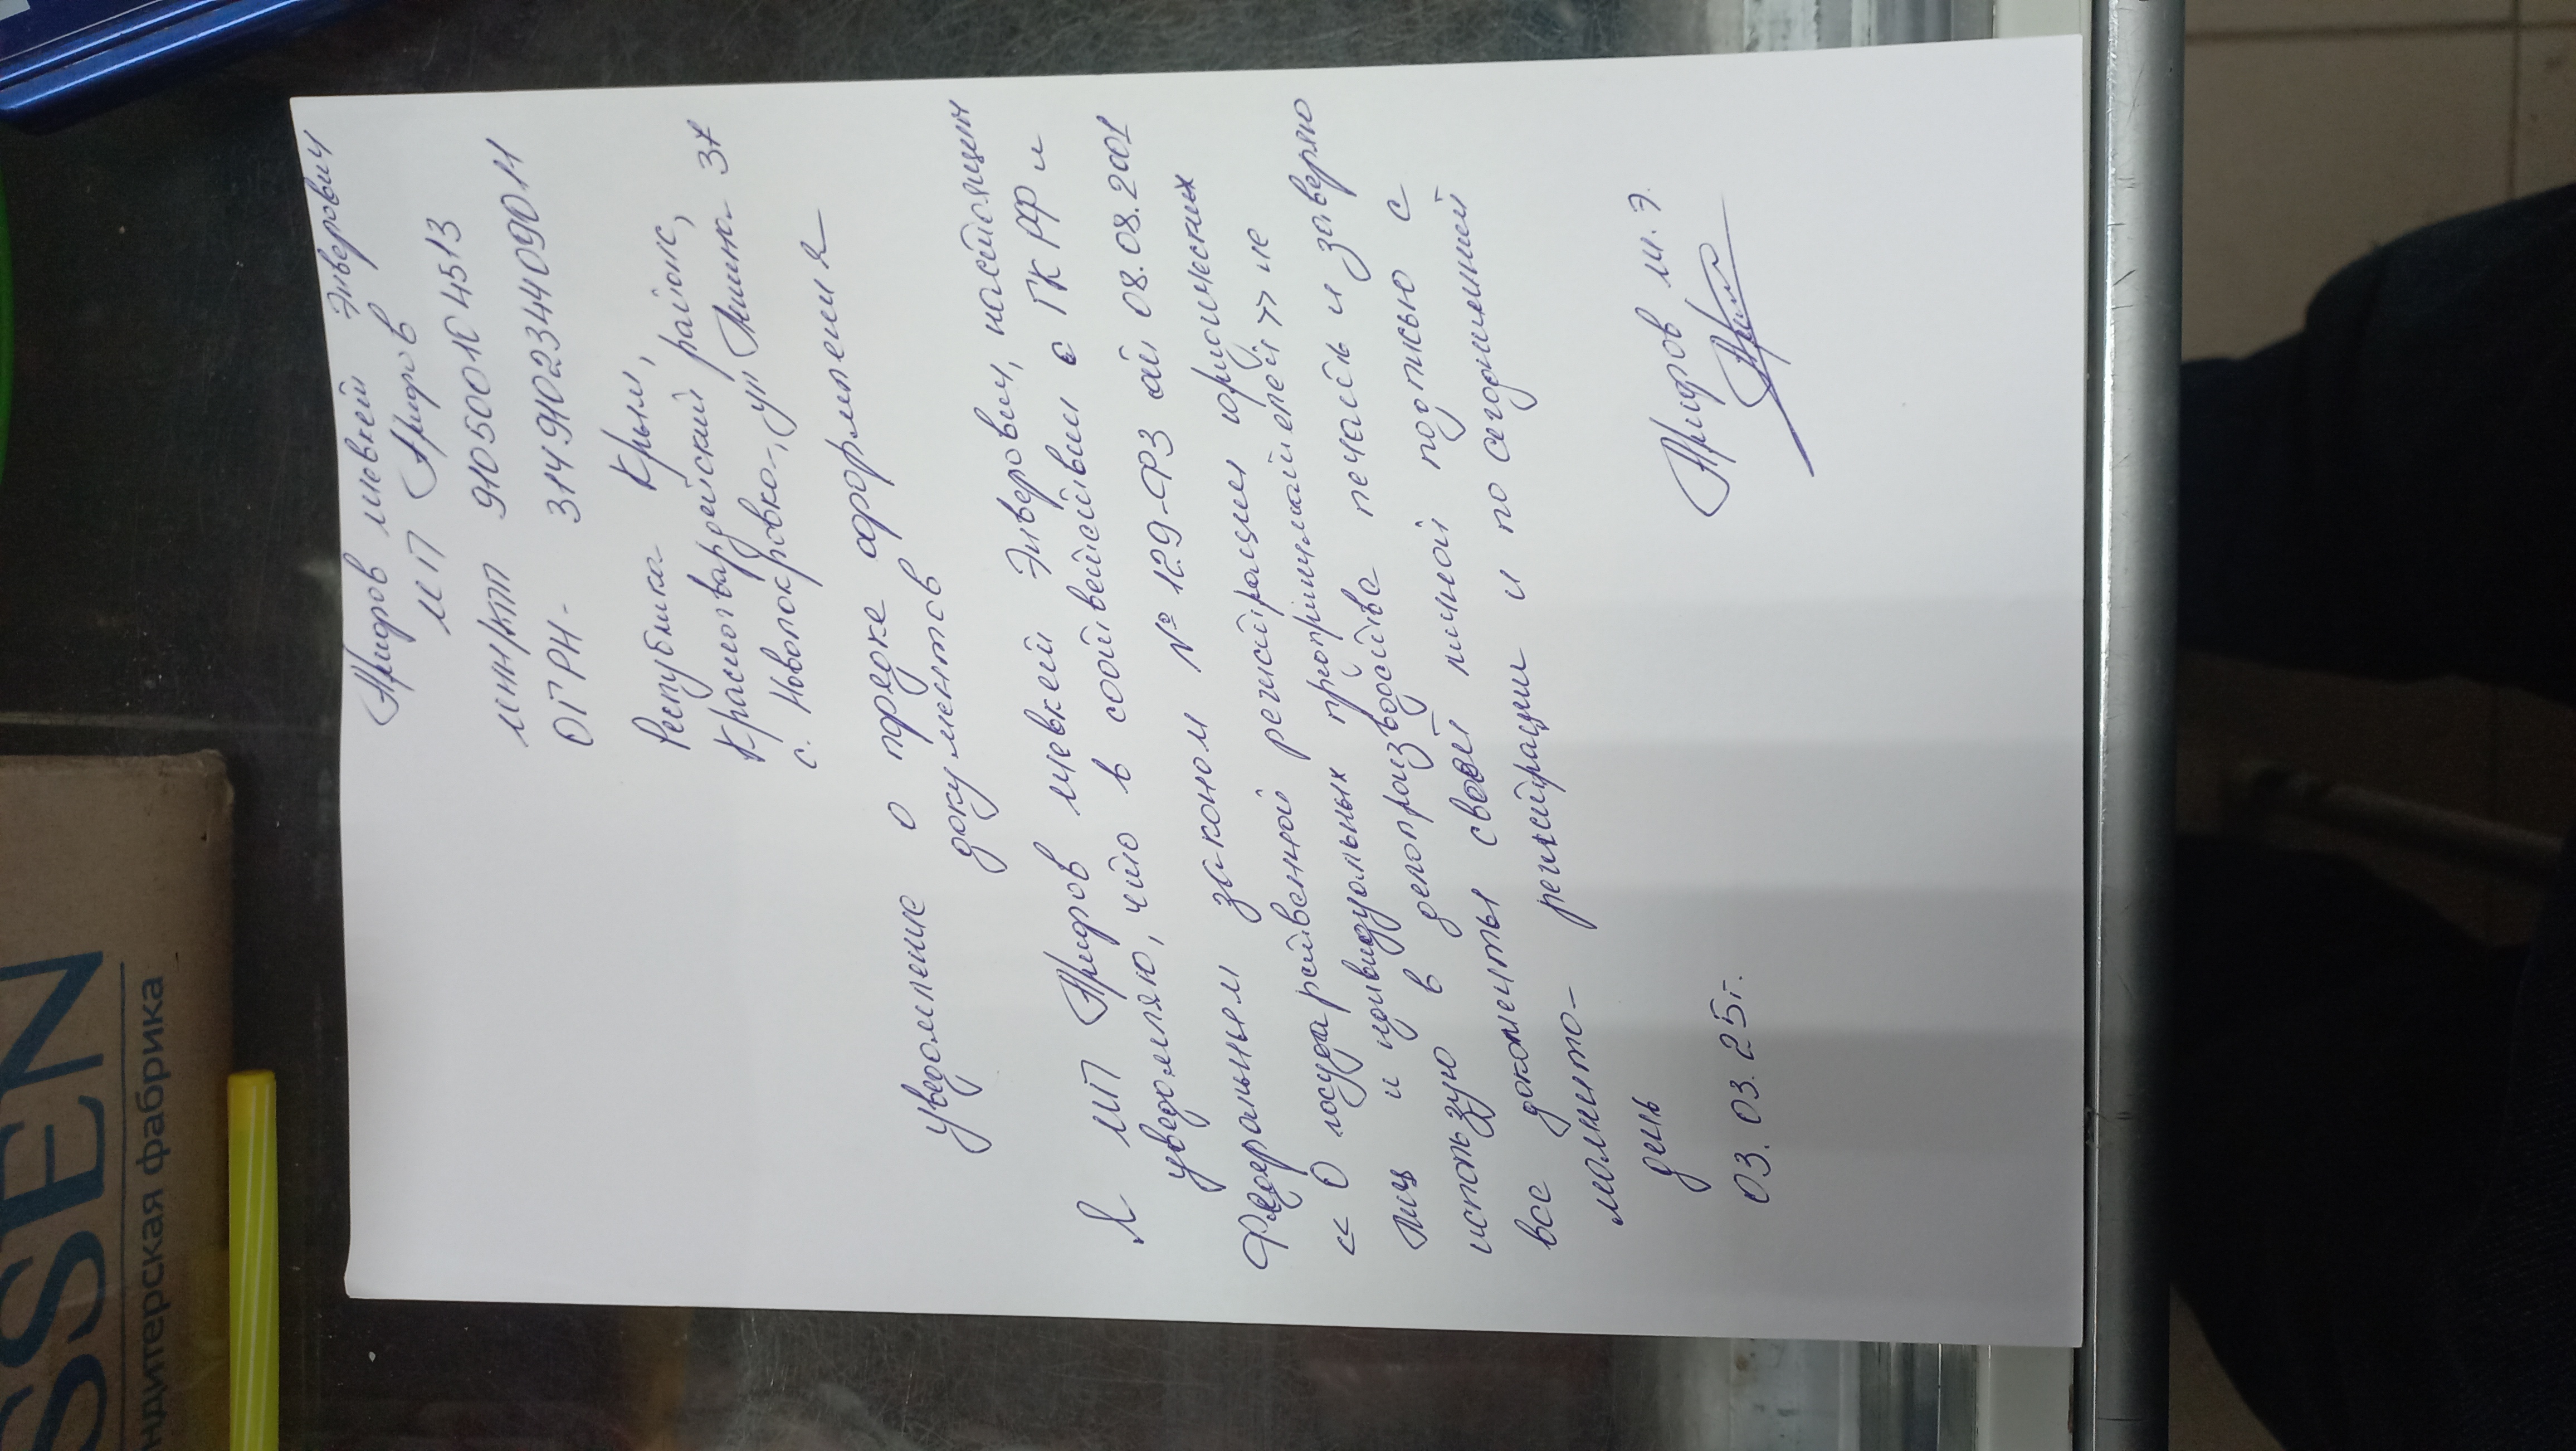 Арифов Мевкей Энверович
ИП Арифов
ИНН/КПП 910500104513
ОГРН - 314910234409011
Республика Крым,
Красногвардейский районс,
с. Новопокровка, ул Ленина 37
уведомление о предке оформления
документов
Я ИП Арифов Мевкей Энверович, настоящим
уведомляю, что в соответствии с ГК РФ и
Федеральным законом № 129-ФЗ от 08.08.2001
« О государственной регистрации юридических
лиц и индивидуальных предпринимателей » не
использую в делопроизводства печать и заверяю
все документы своей личной подписью с
момента регистрации и по сегодняшней
день
03.03.25г.
Арифов М.Э.
SSEN
ндитерская фабрика